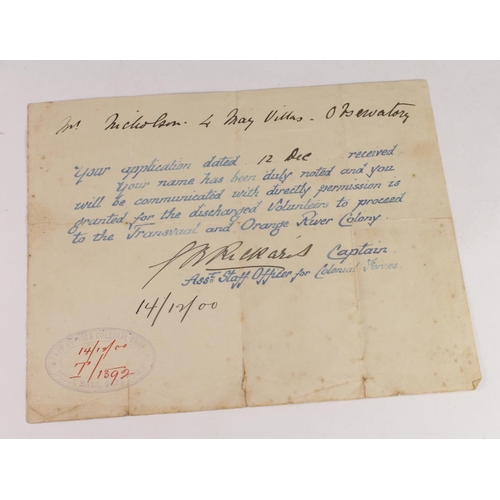 Mr Nicholson. 4 May Villas. Observatory
Your application dated 12 Dec received
Your name has been duly noted and you
will be communicated with directly permission is
granted for the discharged Volunteers to proceed
to the Transvaal and Orange River Colony.
Rickards Captain
Asst Staff Officer for Colonial Forces.
14/12/00
14/12/00
I/1392